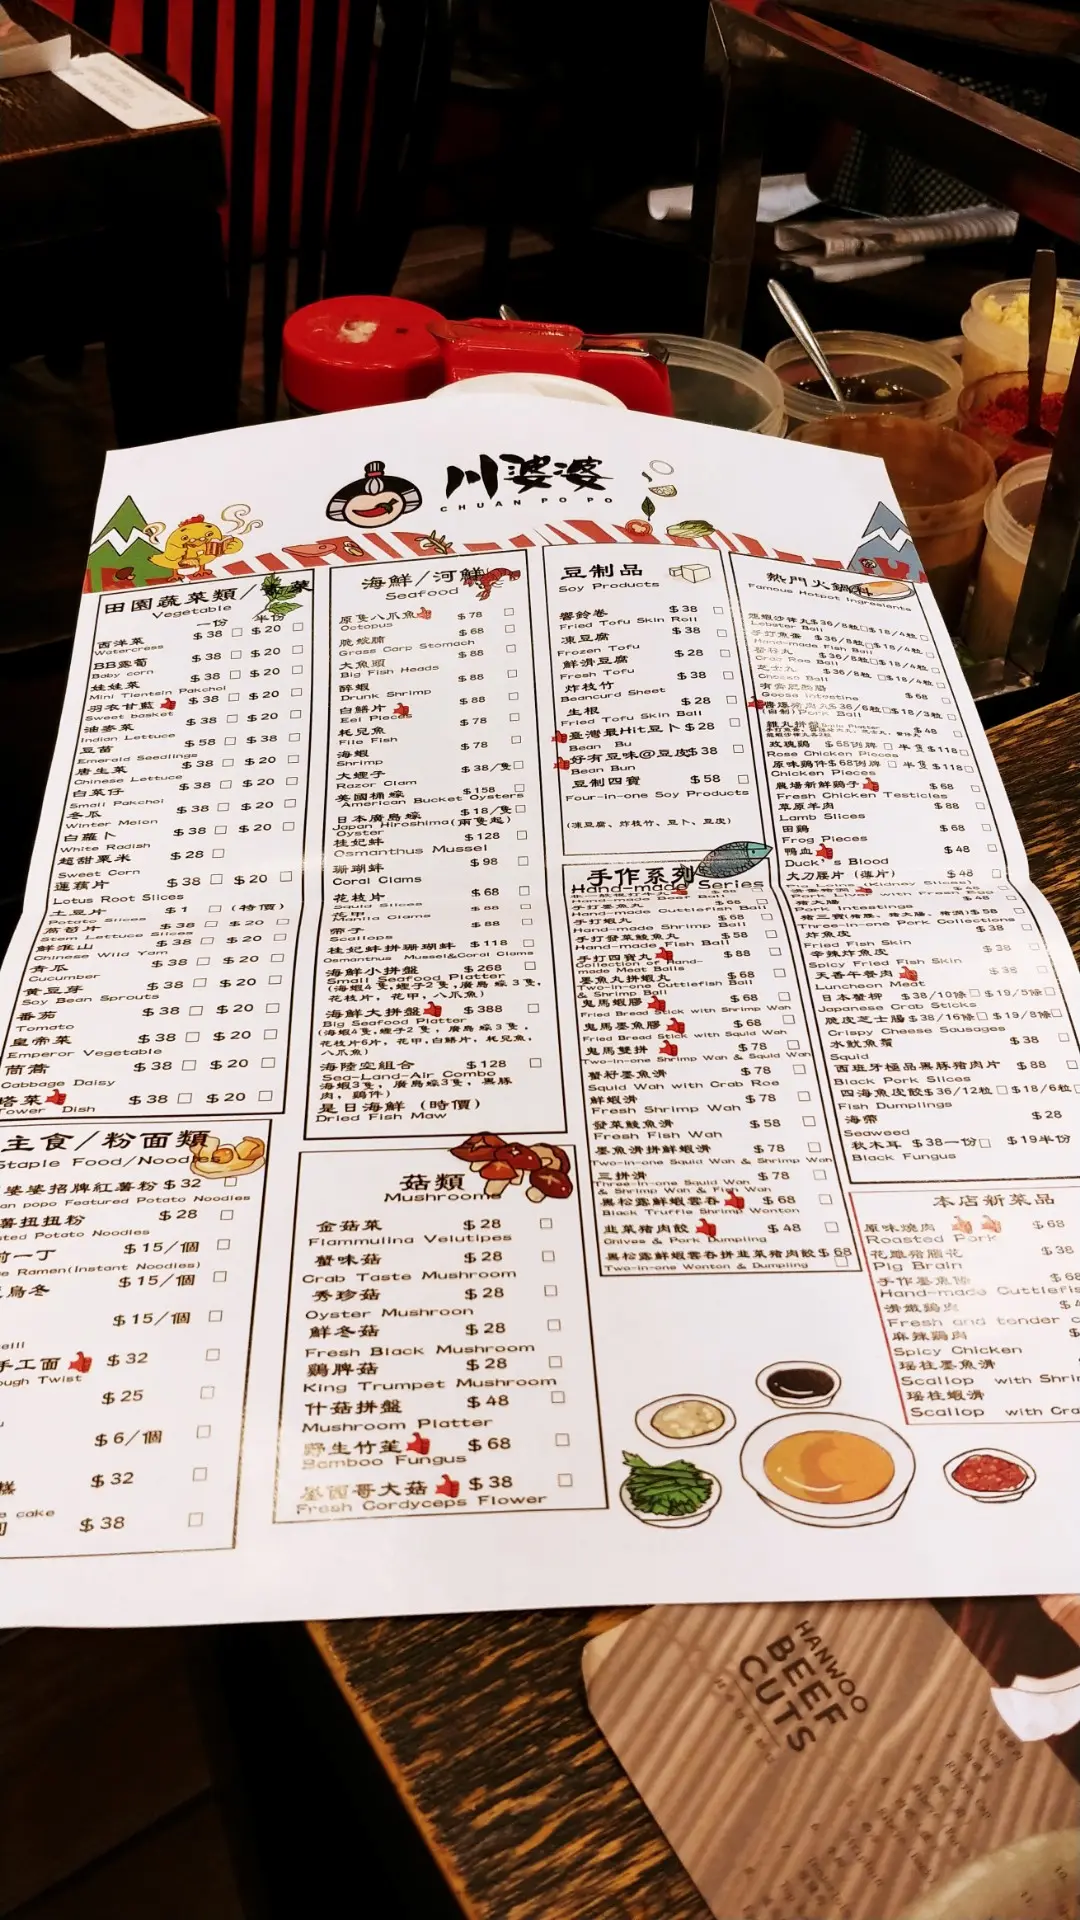 川婆婆
CHUAN PO PO
田園蔬菜類/
Vegetable
一份 半份
西洋菜 $38 □ $20 □
Watercress
BB露荀 $38 □ $20 □
Baby corn
娃娃菜 $38 □ $20 □
Mini Tientsin Pakchoi
羽衣甘藍 $38 □ $20 □
Sweet basket
油麥菜 $38 □ $20 □
Indian Lettuce
豆苗 $58 □ $38 □
Emerald Seedlings
唐生菜 $38 □ $20 □
Chinese Lettuce
白菜仔 $38 □ $20 □
Small Pakchoi
冬瓜 $38 □ $20 □
Winter Melon
白蘿卜 $38 □ $20 □
White Radish
超甜粟米 $28 □
Sweet Corn
蓮藕片 $38 □ $20 □
Lotus Root Slices
土豆片 $1 □ (特價)
Potato Slices
萵筍片 $38 □ $20 □
Stem Lettuce Slices
鮮淮山 $38 □ $20 □
Chinese Wild Yam
青瓜 $38 □ $20 □
Cucumber
黄豆芽 $38 □ $20 □
Soy Bean Sprouts
番茄 $38 □ $20 □
Tomato
皇帝菜 $38 □ $20 □
Emperor Vegetable
茼蒿 $38 □ $20 □
Cabbage Daisy
塔菜 $38 □ $20 □
Tower Dish
主食/粉面類
Staple Food/Noodles
婆婆招牌紅薯粉 $32 □
an popo Featured Potato Noodles
薯扭扭粉 $28 □
sted Potato Noodles
前一丁 $15/個 □
e Ramen(Instant Noodles)
烏冬 $15/個 □
$15/個 □
手工面 $32 □
ough Twist
$25 □
$6/個 □
$32 □
e cake
$38 □
海鮮/河鮮
Seafood
原隻八爪魚 $78 □
Octopus
脆鯇腩 $68 □
Grass Carp Stomach
大魚頭 $88 □
Big Fish Heads
醉蝦 $88 □
Drunk Shrimp
白鱔片 $88 □
Eel Pieces
耗兒魚 $78 □
File Fish
海蝦 $78 □
Shrimp
大蟶子 $38/隻 □
Razor Clam
美國桶蠔 $158 □
American Bucket Oysters
日本廣島蠔 $18/隻 □
Japan Hiroshima(兩隻起)
Oyster
桂妃蚌 $128 □
Osmanthus Mussel
珊瑚蚌 $98 □
Coral Clams
花枝片 $68 □
Squid Slices
花甲 $88 □
Manila Clams
帶子 $88 □
Scallops
桂妃蚌拼珊瑚蚌 $118 □
Osmanthus Mussel&Coral Clams
海鮮小拼盤 $268 □
Small Seafood Platter
(海蝦4隻,蟶子2隻,廣島蠔3隻,
花枝片,花甲,八爪魚)
海鮮大拼盤 $388 □
Big Seafood Platter
(海蝦6隻,蟶子2隻,廣島蠔3隻,
花枝片6片,花甲,白鱔片,耗兒魚,
八爪魚)
海陸空組合 $128 □
Sea-Land-Air Combo
海蝦3隻,廣島蠔3隻,黑豚
肉,鷄件)
是日海鮮 (時價)
Dried Fish Maw
菇類
Mushrooms
金菇菜 $28 □
Flammulina Velutipes
蟹味菇 $28 □
Crab Taste Mushroom
秀珍菇 $28 □
Oyster Mushroon
鮮冬菇 $28 □
Fresh Black Mushroom
鷄髀菇 $28 □
King Trumpet Mushroom
什菇拼盤 $48 □
Mushroom Platter
野生竹笙 $68 □
Bamboo Fungus
墨西哥大菇 $38 □
Fresh Cordyceps Flower
豆制品
Soy Products
響鈴卷 $38 □
Fried Tofu Skin Roll
凍豆腐 $38 □
Frozen Tofu
鮮滑豆腐 $28 □
Fresh Tofu
炸枝竹 $38 □
Beancurd Sheet
生根 $28 □
Fried Tofu Skin Ball
臺灣最Hit豆卜 $28 □
Bean Bu
好有豆味@豆皮 $38 □
Bean Bun
豆制四寶 $58 □
Four-in-one Soy Products
(凍豆腐、炸枝竹、豆卜、豆皮)
手作系列
Hand-made Series
Hand-made Beef Ball
手打墨魚丸 $68 □
Hand-made Cuttlefish Ball
手打蝦丸 $68 □
Hand-made Shrimp Ball
手打發菜鯪魚丸 $58 □
Hand-made Fish Ball
手打四寶丸 $88 □
Collection of Hand-
made Meat Balls
墨魚丸拼蝦丸 $68 □
Two-in-one Cuttlefish Ball
& Shrimp Ball
鬼馬蝦膠 $68 □
Fried Bread Stick with Shrimp Wah
鬼馬墨魚膠 $68 □
Fried Bread Stick with Squid Wah
鬼馬雙拼 $78 □
Two-in-one Shrimp Wah & Squid Wah
蟹籽墨魚滑 $78 □
Squid Wah with Crab Roe
鮮蝦滑 $78 □
Fresh Shrimp Wah
發菜鯪魚滑 $58 □
Fresh Fish Wah
墨魚滑拼鮮蝦滑 $78 □
Two-in-one Squid Wah & Shrimp Wah
三拼滑 $78 □
Three-in-one Squid Wah
& Shrimp Wah & Fish Wah
黑松露鮮蝦雲吞 $68 □
Black Truffle Shrimp Wonton
韭菜猪肉餃 $48 □
Chives & Pork Dumpling
黑松露鮮蝦雲吞拼韭菜猪肉餃 $68 □
Two-in-one Wonton & Dumpling
熱門火鍋料
Famous Hotpot Ingredients
$36/8粒 □ $18/4粒 □
Lobster Ball
手打魚蛋 $36/8粒 □ $18/4粒 □
Hand-made Fish Ball
蟹籽丸 $36/8粒 □ $18/4粒 □
Crab Roe Ball
芝士丸 $36/8粒 □ $18/4粒 □
Cheese Ball
$68 □
Goose Intestine
$36/6粒 □ $18/3粒 □
(自制)Pork Ball
雜丸拼盤 $48 □
玫瑰鷄 $68例牌 □ 半隻$118 □
Rose Chicken Pieces
原味鷄件$68例牌 □ 半隻$118 □
Chicken Pieces
農場新鮮鷄子 $68 □
Fresh Chicken Testicles
草原羊肉 $88 □
Lamb Slices
田鷄 $68 □
Frog Pieces
鴨血 $48 □
Duck's Blood
大刀腰片 (薄片) $48 □
Pig Loins (Kidney Slices)
$48
Pork Liver with Fresh Egg
猪大腸 $48 □
Pork Intestings
猪三寶(猪腰、猪大腸、猪潤)$58 □
Three-in-one Pork Collections
炸魚皮 $38 □
Fried Fish Skin
辛辣炸魚皮 $38 □
Spicy Fried Fish Skin
天香午餐肉 $38 □
Luncheon Meat
日本蟹柳 $38/10條 □ $19/5條 □
Japanese Crab Sticks
脆皮芝士腸 $38/16條 □ $19/8條 □
Crispy Cheese Sausages
水魷魚鬚 $38 □
Squid
西班牙極品黑豚猪肉片 $88 □
Black Pork Slices
四海魚皮餃 $36/12粒 □ $18/6粒 □
Fish Dumplings
海帶 $28 □
Seaweed
秋木耳 $38一份 □ $19半份
Black Fungus
本店新菜品
原味燒肉 $68
Roasted Pork
花雕猪腦花 $38
Pig Brain
手作墨魚 $68
Hand-made Cuttlefis
滑嫩鷄肉 $4
Fresh and tender c
麻辣鷄肉
Spicy Chicken
瑶柱墨魚滑
Scallop with Shri
瑶柱蝦滑
Scallop with Cra
HANWOO
BEEF
CUTS